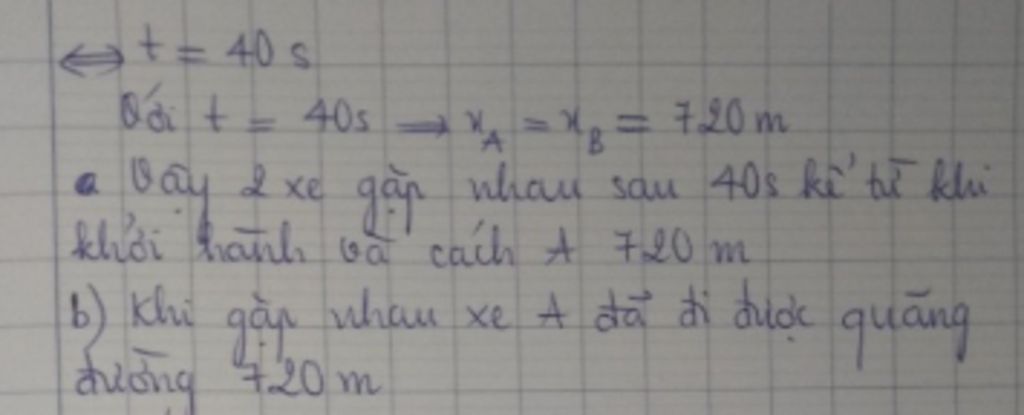 ⇔ t = 40 s
Với t = 40s → x_A = x_B = 720 m
Vậy 2 xe gặp nhau sau 40s kể từ khi
khởi hành và cách A 720 m
b) Khi gặp nhau xe A đã đi được quãng
đường 720 m